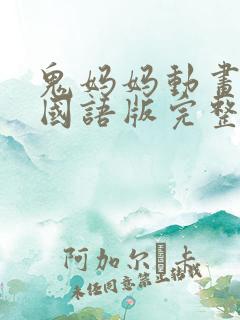 鬼妈妈動畫
國語版完整
阿加尔�卡
未经同意禁止转载